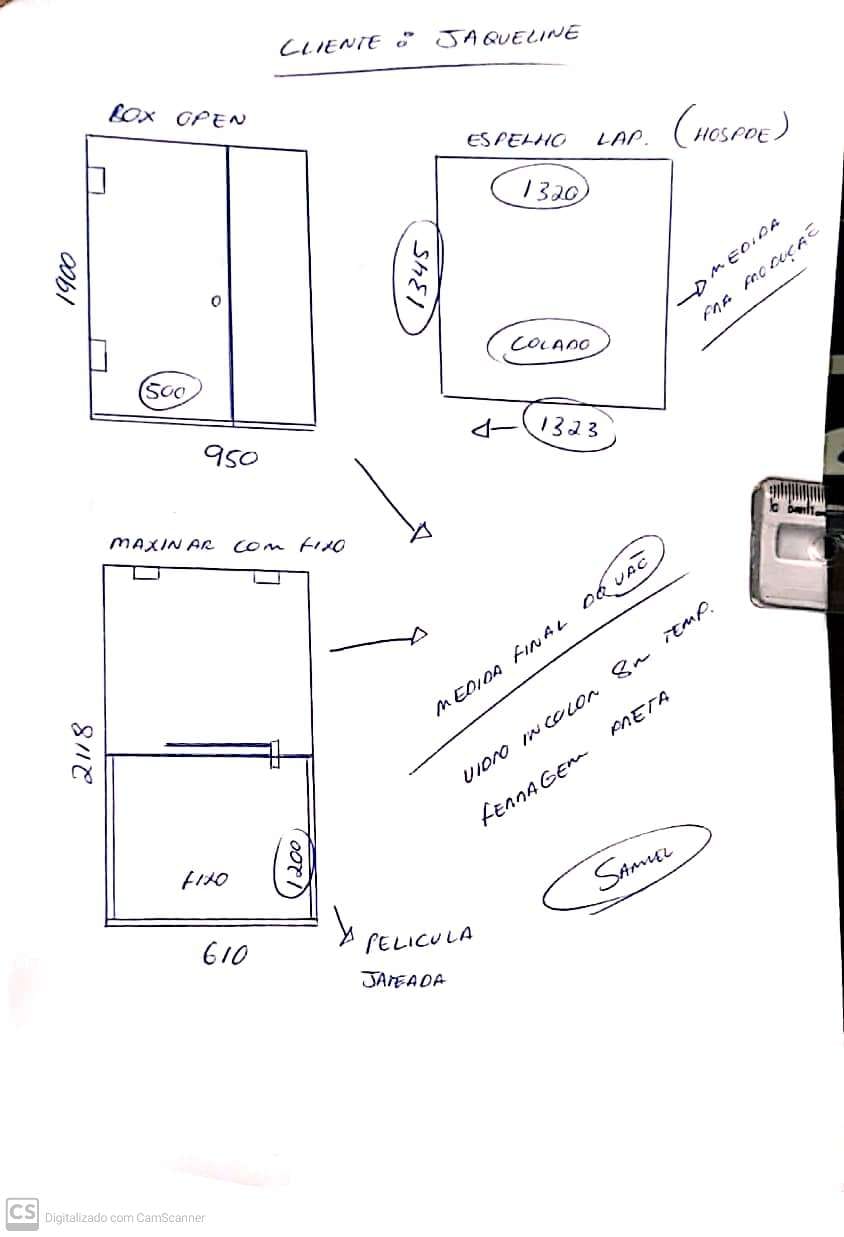 CLIENTE: JAQUELINE
BOX OPEN
1900
500
950
ESPELHO LAP. (HOSPDE)
1320
1345
COLADO
1323
MEDIDA
PRA PRODUÇÃO
MAXINAR COM FIXO
2118
FIXO
1200
610
PELICULA
JATEADA
MEDIDA FINAL DO VÃO
VIDRO INCOLOR 8M TEMP.
FERRAGEM PRETA
SAMUEL
CS Digitalizado com CamScanner